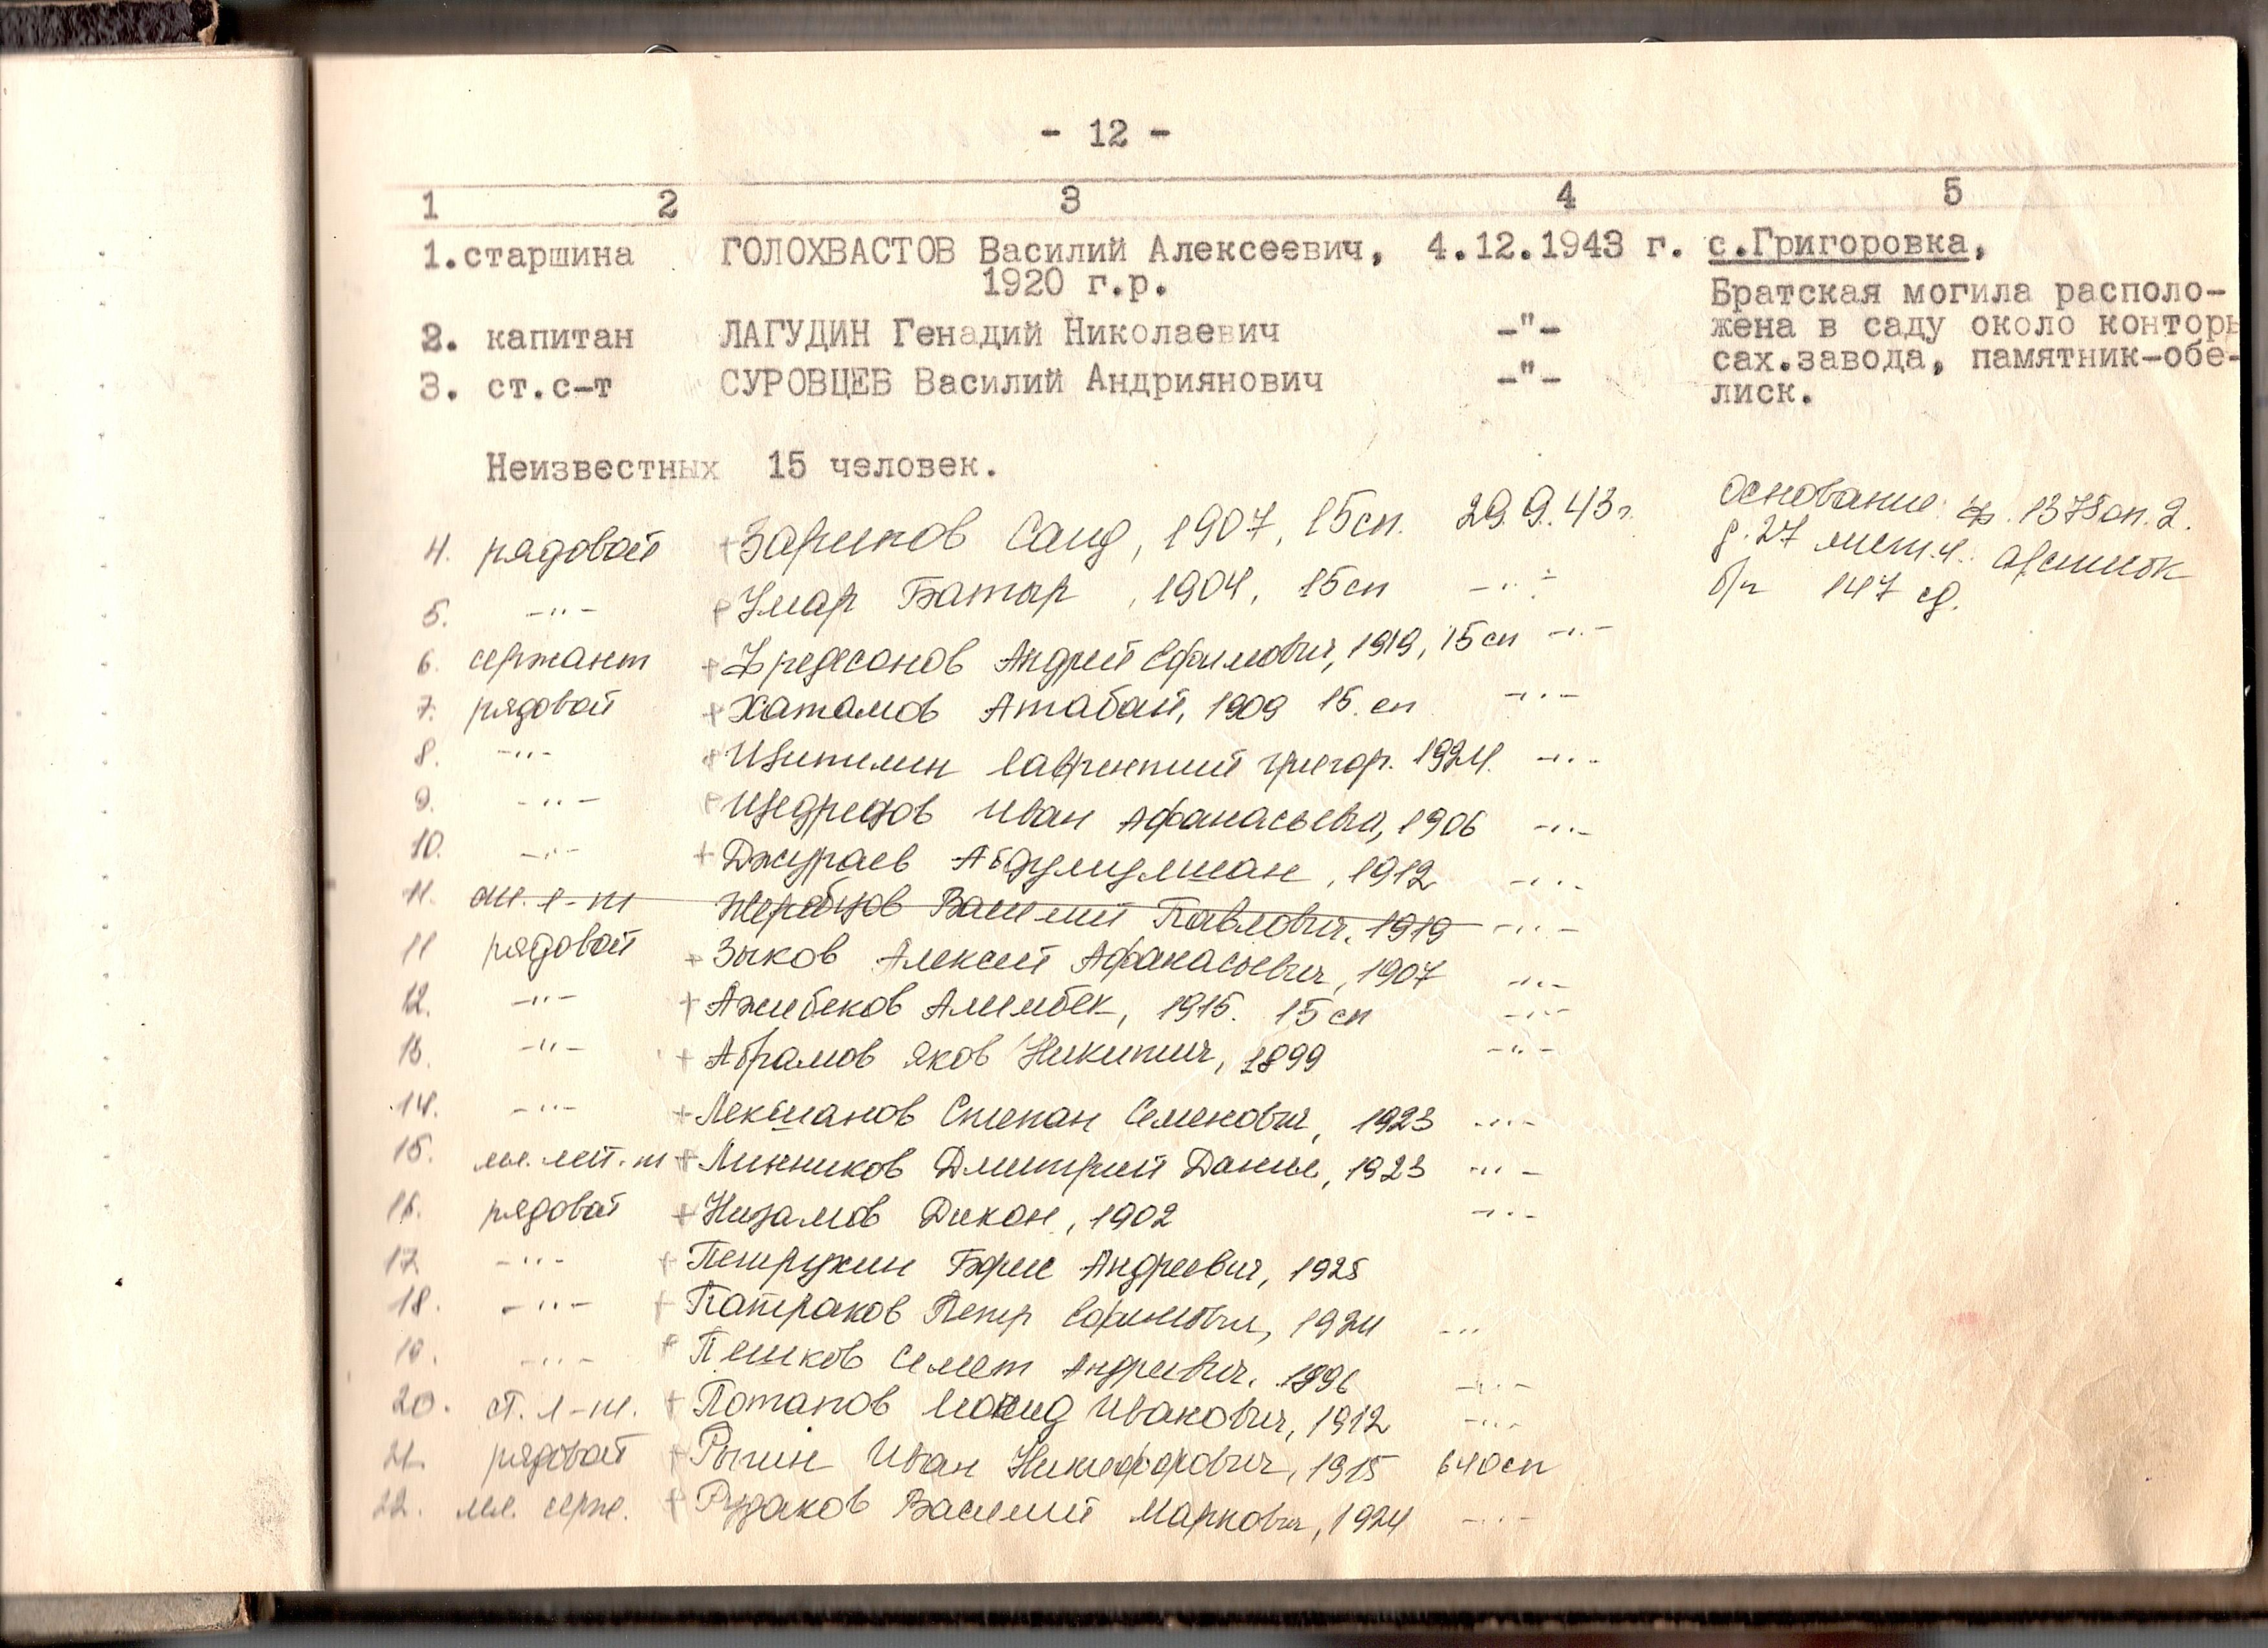 - 12 -
1 2 3 4 5
1.старшина ГОЛОХВАСТОВ Василий Алексеевич, 4.12.1943 г. с.Григоровка,
1920 г.р.
Братская могила располо-
2. капитан ЛАГУДИН Генадий Николаевич -"- жена в саду около конторы
сах.завода, памятник-обе-
3. ст.с-т СУРОВЦЕВ Василий Андриянович -"-
лиск.
Неизвестных 15 человек.
4. рядовой +Зарипов Саид, 1907, 15сп. 29.9.43г. Основание: ф. 1378 оп. 2.
д. 27 лист.4.
5. -"- Умар Батыр, 1904, 15сп -"- б/н 147 сд.
6. сержант + Андрей Ефимович, 1919, 15сп -"-
7. рядовой +Хатамов Атабай, 1909 15.сп -"-
8. -"- Лаврентий Григор. 1924. -"-
9. -"- Щедрецов Иван Афанасьевич, 1906 -"-
10. -"- +Джураев 1912 -"-
11. мл. л-т Жеребцов Василий Павлович, 1919 -"-
11 рядовой +Зыков Алексей Афанасьевич, 1907 -"-
12. -"- +Ажибеков Алимбек, 1915. 15сп -"-
13. -"- +Абрамов Яков Никитич, 1899 -"-
14. -"- +Лекшанов Степан Семенович, 1923 -"-
15. мл. лей-т +Линников Дмитрий Данил, 1923 -"-
16. рядовой +Низамов Дикан, 1902 -"-
17. -"- +Петрухин Борис Андреевич, 1925
18. -"- +Патраков Петр Ефимович, 1924 -"-
19. -"- Пешков Андреевич, 1896 -"-
20. ст. л-т. +Потапов Леонид Иванович, 1912 -"-
21. рядовой + Иван Никифорович, 1915 640сп
22. мл. серж. +Рудаков Василий Маркович, 1924 -"-